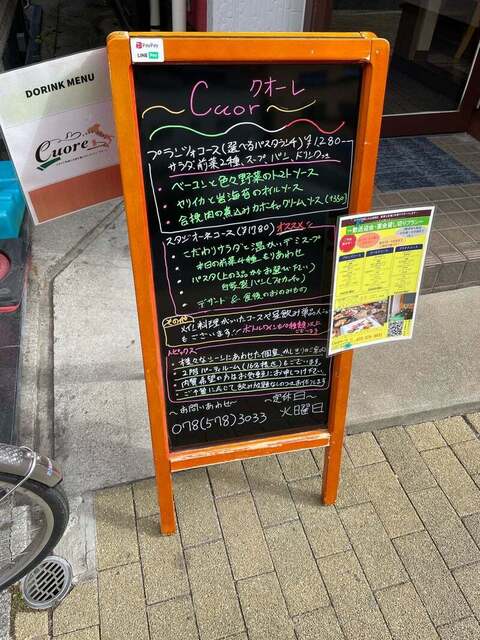 PayPay
LINE Pay
DORINK MENU
Cuore
クオーレ
～Cuor～
プランゾォコース(選べるパスタランチ)¥1,280-
サラダ、前菜2種、スープ、パン、ドリンク
・ベーコンと色々野菜のトマトソース
・ヤリイカと岩海苔のオイルソース
・合挽肉の煮込みカボチャクリームソース(+350)
スタジオーネコース(¥1780) オススメ
・こだわりサラダと温かいデミスープ
本日の前菜2種もりあわせ
・パスタ(上の3品からお選び下さい)
自家製パン(フォカッチャ)
・デザート & 食後のおのみもの
その他
メイン料理がついたコースや昼飲み単品メニュー
もございます!! ボトルワインも10種類以上
ございます
トピックス
・様々なシーンにあわせた個室
・2階パーティルーム(16名様迄)もございます。
内覧希望の方はお気軽にお申しつけ下さい
・ご予算に応じて飲み放題なしのコースも作れます
～お問いあわせ～
078(578)3033
～定休日～
火曜日